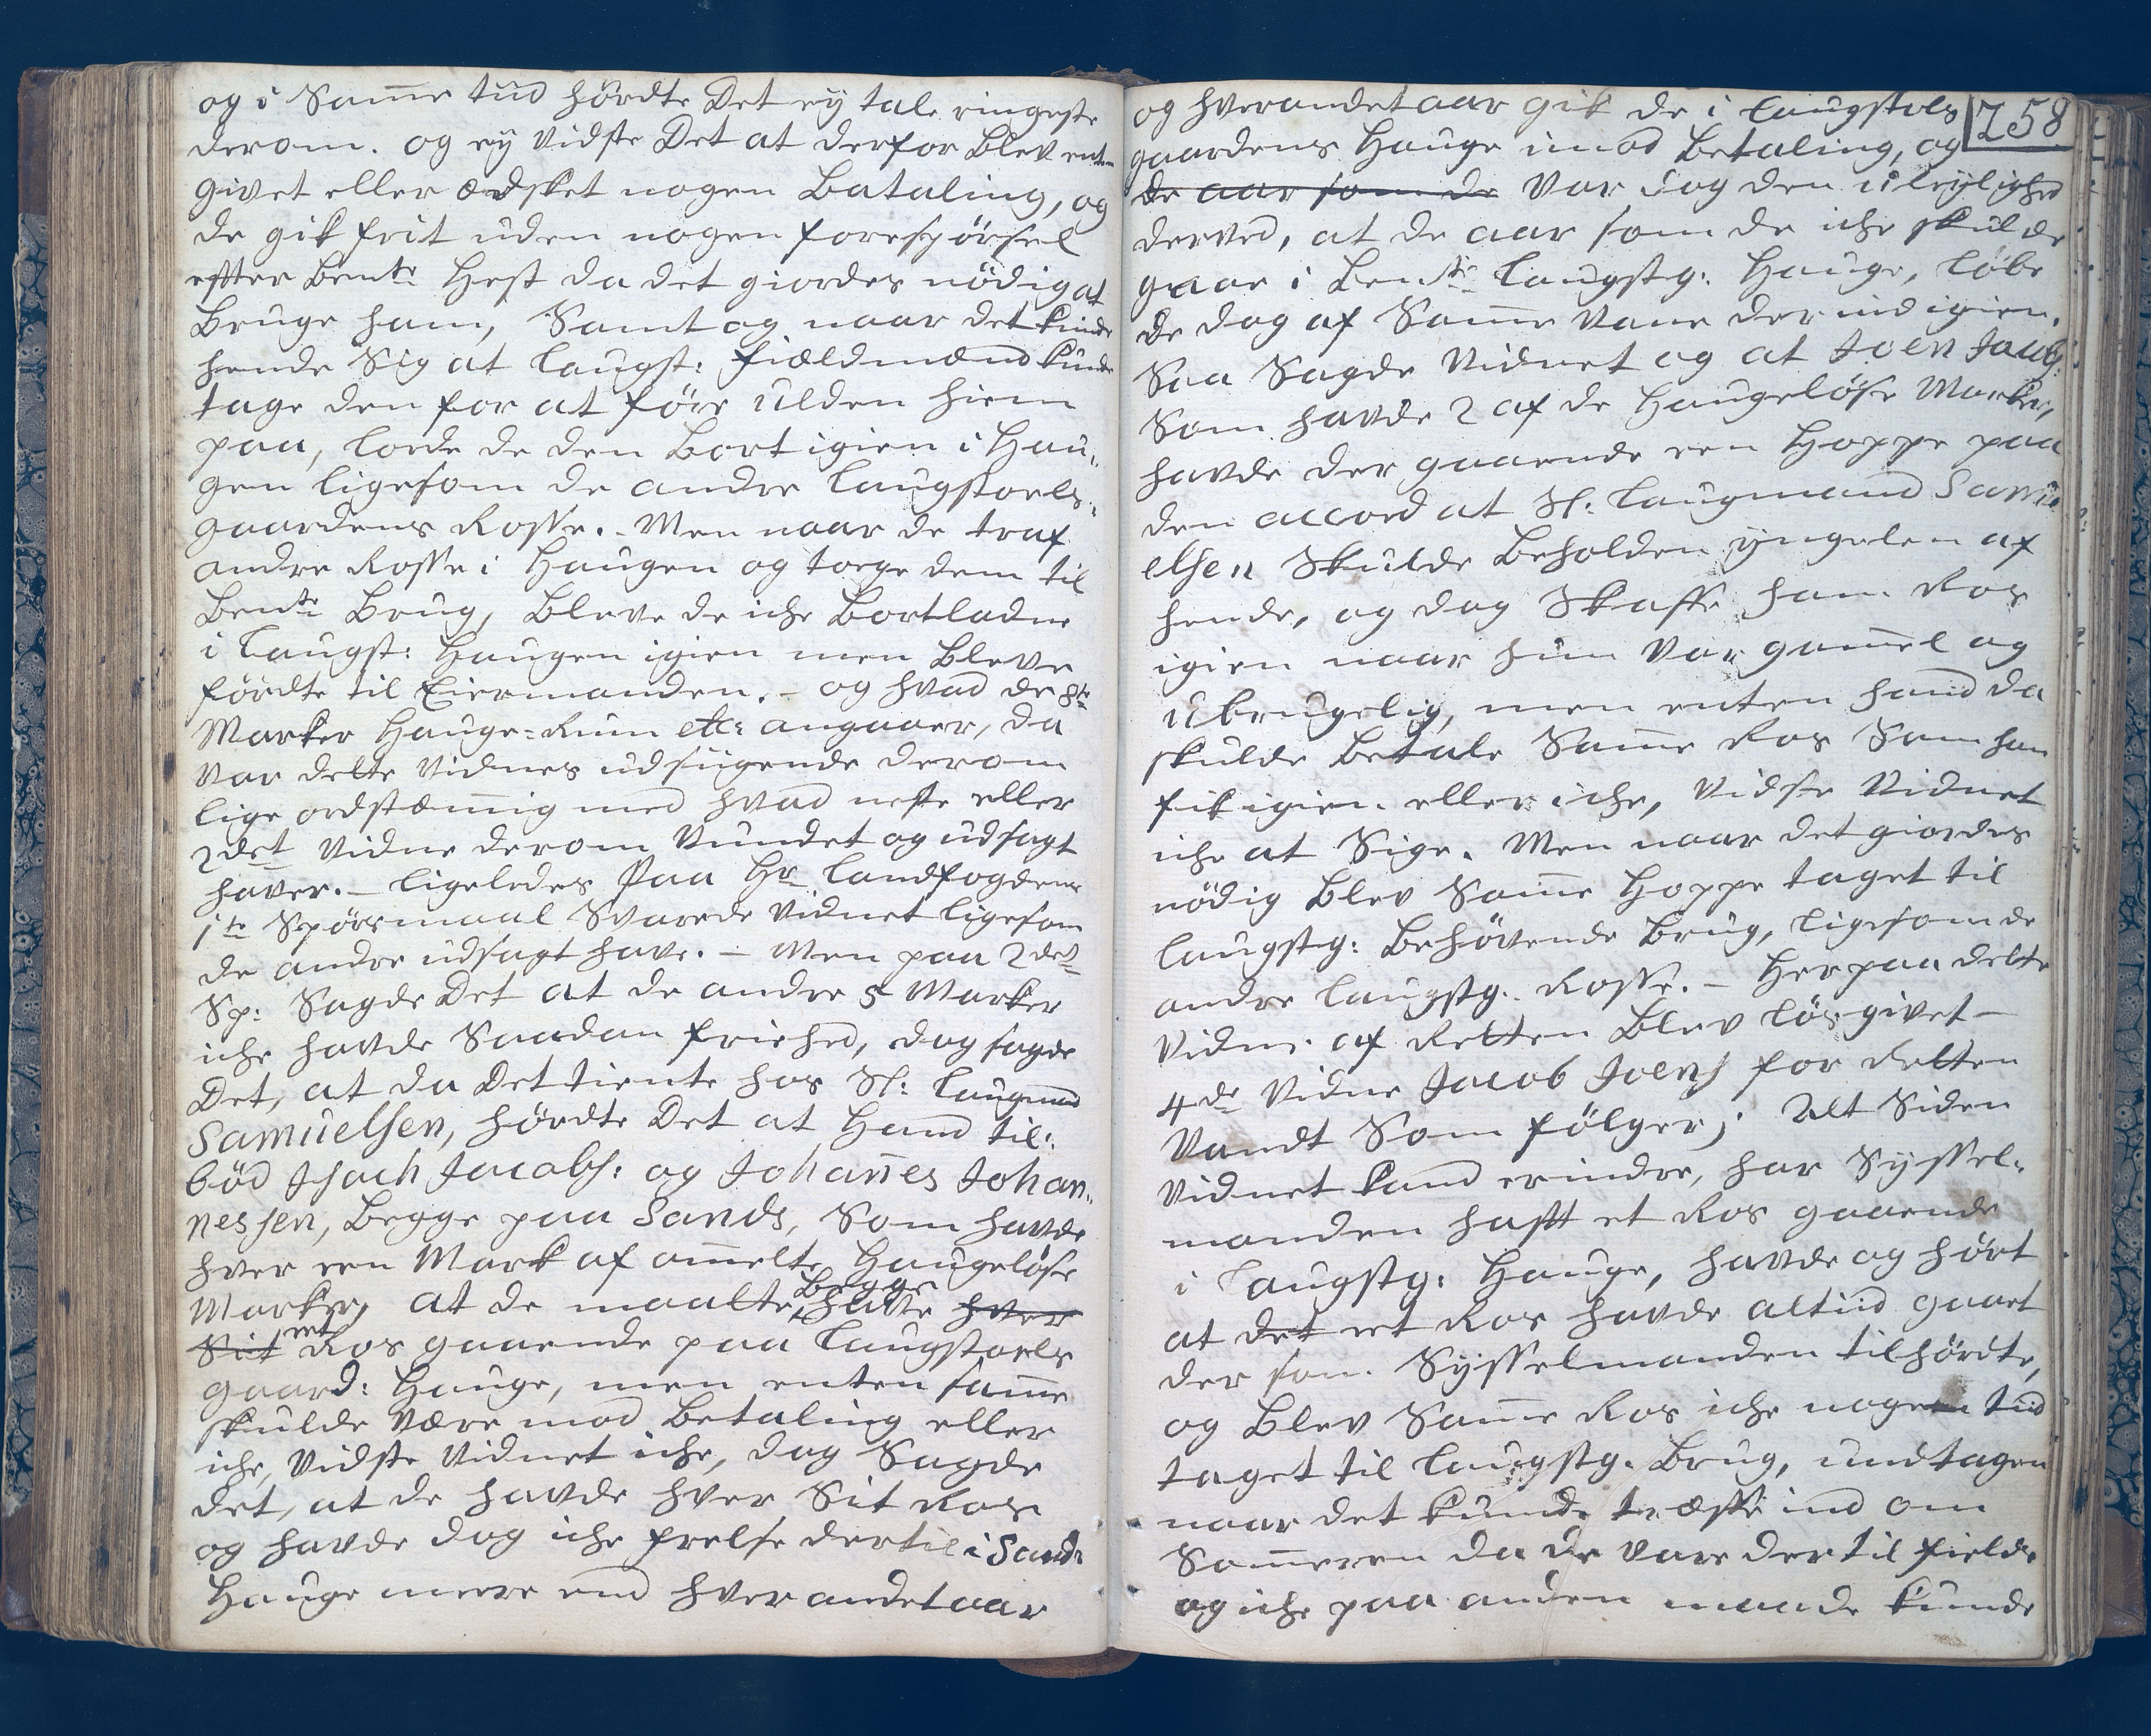 og i Samme tiid hördte Det ey tale ringeste
derom. og ey vidste Det at derfor blev enten
givet eller ædsket nogen Bataling, og
de gik frit uden nogen forespörsel
efter bem:te Hest da det giordes nödig at
bruge ham, Samt og naar det kunde
hende Sig at Laugst: fieldmænd kunde
tage den for at före ulden hiem
paa, lode de den bort igien i Hau„
gen ligesom de andre Laugstoels„
gaardens Rosse. Men naar de traf
andre Rosse i Haugen og toege dem til
bem:te brug, bleve de iche bortladne
i Laugst: Haugen igien men bleve
fördte til Eiermanden. – og hvad de 8te
Marker Hauge=Rum etc: angaaer, da
var dette Vidnes udsigende derom
lige ordstæmig med hvad neste eller
2det Vidne derom vundet og udsagt
haver. – ligeledes Paa Hr Landfogdens
1te Spörsmaal Svarede Vidnet ligesom
de andre udsagt have. – Men paa 2det
Sp: Sagde Det at de andre 5 Marker
iche havde Saadan friehed, dog sagde
Det, at da Det tiente hos Sl: Laugmand
Samuelsen, hördte Det at Hand til„
böd Isach Jacobs: og Johannes Johan„
nessen, begge paa Sands, Som havde
hver een Mark af ommelte Haugelöse
Marker, at de maatte begge hafve hver
Sit et Ros gaaende paa Laugstoels
gaard: Hauge, men enten samme
skulde være mod betaling eller
iche, Vidste Vidnet iche, dog Sagde
det, at de havde hver Sit Ros
og havde dog iche frelse dertil i Sands
Hauge meere end hver andet aar
258
og hverandet aar gik de i Laugstols
gaardens Hauge imod betaling, og
de aar som de var dog den uleylighed
derved, at de aar som de iche skulde
gaae i bem:te Laugstg: Hauge, löbe
de dog af Samme vane der ind igien.
Saa Sagde Vidnet og at Joen Jacobs:
Som havde 2 af de Haugelöse Marker,
havde der gaaende een Hoppe paa
den accord at Sl. Laugmand Samu„
elsen Skulde beholden yngelen af
hende, og dog Skaffe ham Ros
igien naar hun var gammel og
ubrugelig, men enten hand da
skulde betale Samme Ros Som han
fik igien eller iche, vidste Vidnet
iche at Sige. Men naar det giordes
nödig blev Samme Hoppe taget til
Laugstg: behövende brug, ligesom de
andre Laugstg. Rosse. – Herpaa dette
Vidne af Retten blev lösgivet –
4de Vidne Jacob Joens: for Retten
Vandt Som fölger; Alt Siden
Vidnet kand erindre, har Syssel„
manden haft et Ros gaaende
i Laugstg: Hauge, havde og hört
at det et Ros havde altiid gaaet
der som Sysselmanden tilhördte,
og blev Samme Ros iche nogen tiid
taget til Laugstg. brug, undtagen
naar det kunde træffe ind om
Sommeren da de vare der til fields
og iche paa anden maade kunde